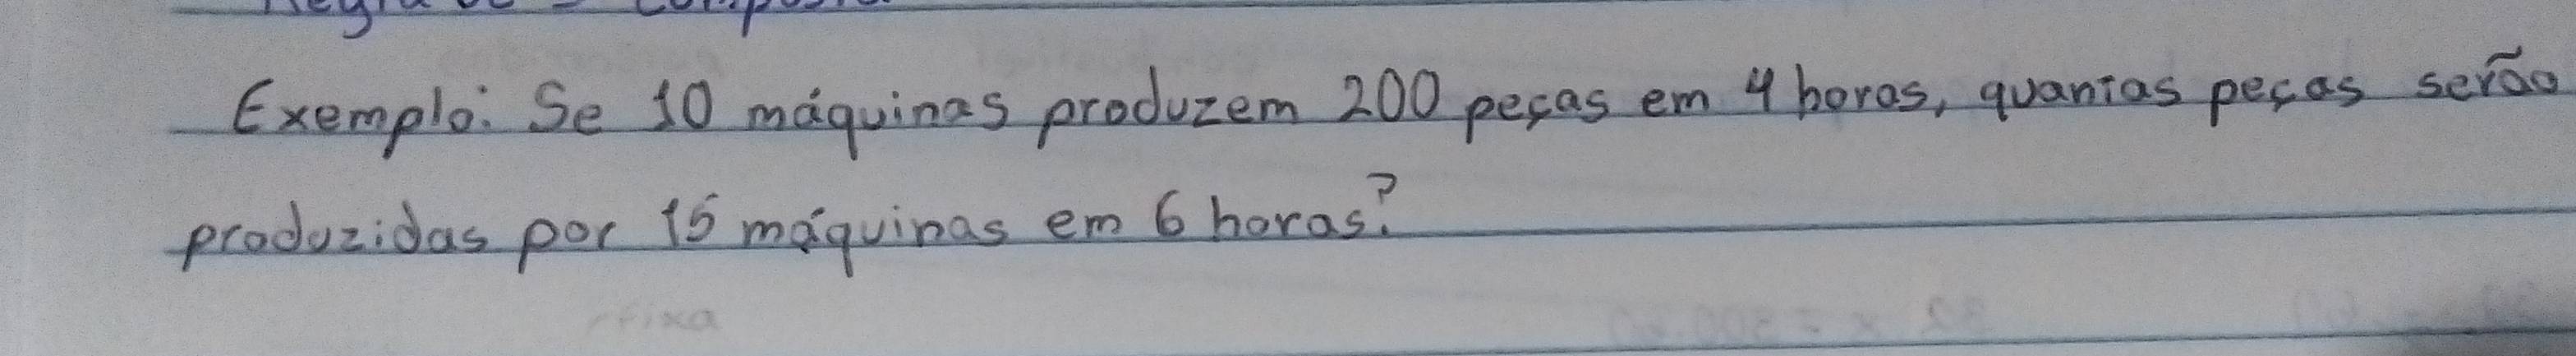 Exemplo: Se 10 máquinas produzem 200 peças em 4 horas, quantas peças serão
produzidas por 15 máquinas em 6 horas?